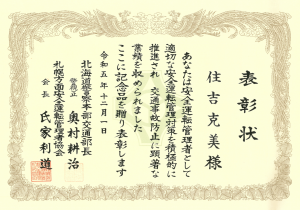 表彰状
住吉克美様
あなたは安全運転管理者として
適切な安全運転管理対策を積極的に
推進され 交通事故防止に顕著な
業績を収められました
ここに記念品を贈り表彰します
令和五年十二月一日
北海道警察本部交通部長
警視正 奥村耕治
札幌方面安全運転管理者協会
会長 氏家利道